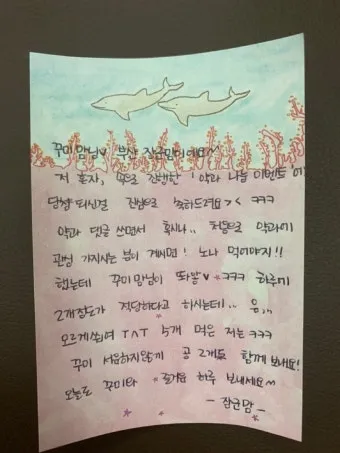 꾸미 맘님♡ 부산 잠군맘이에요~
저 혼자, 속으로 진행한 '약과 나눔 이벤트'에
당첨 되신걸 진심으로 축하드려요 >< ㅋㅋㅋ
약과 댓글 쓰면서 혹시나.. 처음으로 약과에
관심 가지시는 분이 계시면! 노나 먹어야지!!
했는데 꾸미맘님이 똬뫃♡ ㅋㅋㅋ 하루에
2개정도가 적당하다고 하시는데.. 음;;
모르게쒀여 T^T 5개 먹은 저는 ㅋㅋㅋ
꾸미 심심하지않게 공 2개도 함께 보내요!
오늘도 꾸미와 즐거운 하루 보내세요~
- 잠군맘 -